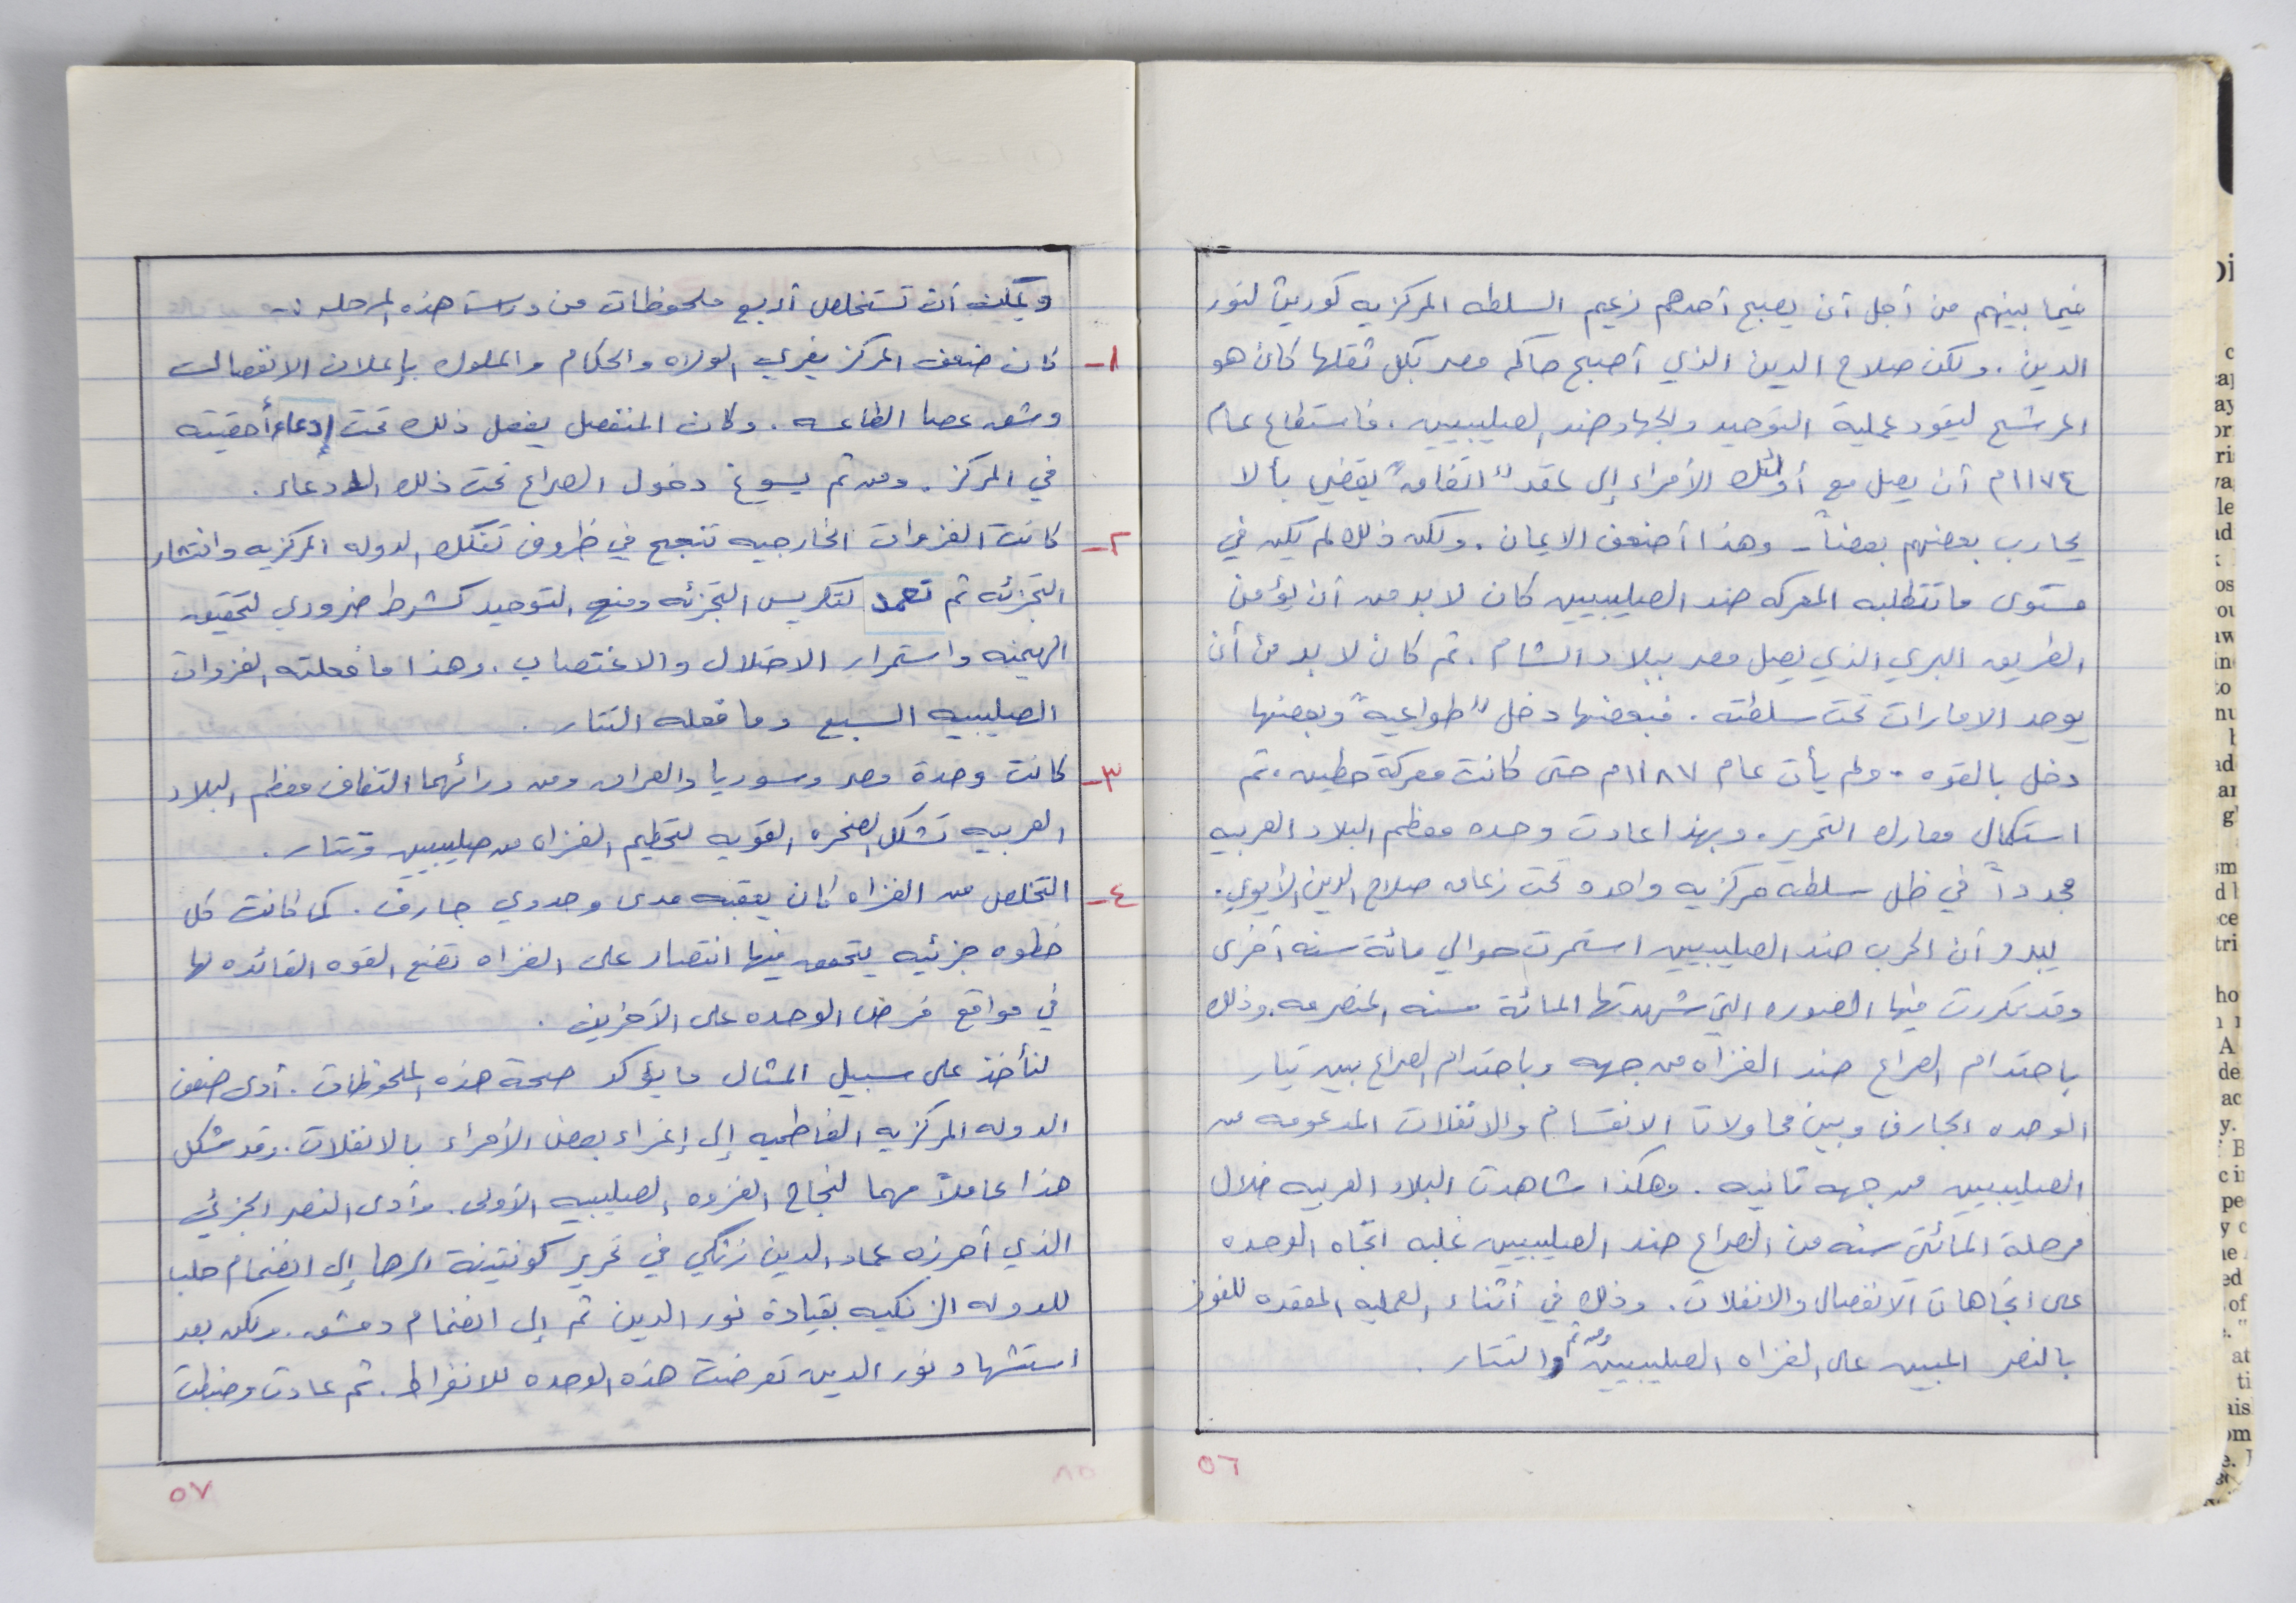 فيما بينهم من أجل أن يصبح أحدهم زعيم السلطه المركزيه كوريث لنور
الدين. ولكن صلاح الدين الذي أصبح حاكم مصر بكل ثقلها كان هو
المرشح ليقود عملية التوحيد والجهاد ضد الصليبيين. فاستطاع عام
١١٧٤م أن يصل مع أولئك الأمراء إلى عقد "اتفاق" يقضي بألا
يحارب بعضهم بعضاً - وهذا أضعف الايمان. ولكن ذلك لم يكن في
مستوى ما تتطلبه المعركه ضد الصليبيين كان لا بد من أن يؤمن
الطريق البري الذي يصل مصر ببلاد الشام. ثم كان لا بد من أن
يوحد الامارات تحت سلطته. فبعضها دخل "طواعية" وبعضها
دخل بالقوه. ولم يأت عام ١١٨٧م حتى كانت معركة حطين. ثم
استكمال معارك التحرير. وبهذا عادت وحده معظم البلاد العربيه
مجدداً في ظل سلطه مركزيه واحده تحت زعامه صلاح الدين الأيوبي.
يبدو أن الحرب ضد الصليبيين استمرت حوالي مائة سنه أخرى
وقد تكررت فيها الصوره التي شهدتها المائة سنه المنصرمه. وذلك
باحتدام الصراع ضد الغزاه من جهه وباحتدام الصراع بين تيار
الوحده الجارف وبين محاولات الانقسام والانفلات المدعومه من
الصليبيين من جهه ثانيه. وهكذا شاهدت البلاد العربيه خلال
مرحلة المائتي سنه من الصراع ضد الصليبيين غلبه اتجاه الوحده
على اتجاهات الانفصال والانفلات. وذلك في أثناء العمليه المعقده للفوز
بالنصر المبين على الغزاه الصليبيين ومن ثم والتتار.
٥٦
ويمكن أن تستخلص أربع ملحوظات من دراسة هذه المرحله :-
١- كان ضعف المركز يغري الولاه والحكام والملوك بإعلان الانفصال
وشق عصا الطاعه. وكان المنفصل يفعل ذلك تحت إدعاء أحقيته
في المركز. ومن ثم يسوغ دخول الصراع تحت ذلك الادعاء.
٢- كانت الغزوات الخارجيه تنجح في ظروف تفكك الدوله المركزيه وانتشار
التجزئه ثم تعمد لتكريس التجزئه ومنع التوحيد كشرط ضروري لتحقيق
الهيمنه واستمرار الاحتلال والاغتصاب. وهذا ما فعلته الغزوات
الصليبيه السبع وما فعله التتار.
٣- كانت وحدة مصر وسوريا والعراق ومن ورائهما التفاف معظم البلاد
العربيه تشكل الصخره القويه لتحطيم الغزاه من صليبيين وتتار.
٤- التخلص من الغزاه كان يعقبه مدى وحدوي جارف. كما كانت كل
خطوه جزئيه يتحقق فيها انتصار على الغزاه تضع القوه القائده لها
في مواقع فرض الوحده على الآخرين.
لنأخذ على سبيل المثال ما يؤكد صحة هذه الملحوظات. أدى ضعف
الدوله المركزيه الفاطميه إلى إغراء بعض الأمراء بالانفلات. وقد شكل
هذا عاملاً مهما لنجاح الغزوه الصليبيه الأولى. وأدى النصر الجزئي
الذي أحرزه عماد الدين زنكي في تحرير كونتينة الرها إلى انضمام حلب
للدوله الزنكيه بقيادة نور الدين ثم إلى انضمام دمشق. ولكن بعد
استشهاد نور الدين تعرضت هذه الوحده للانفراط. ثم عادت وضبطت
٥٧